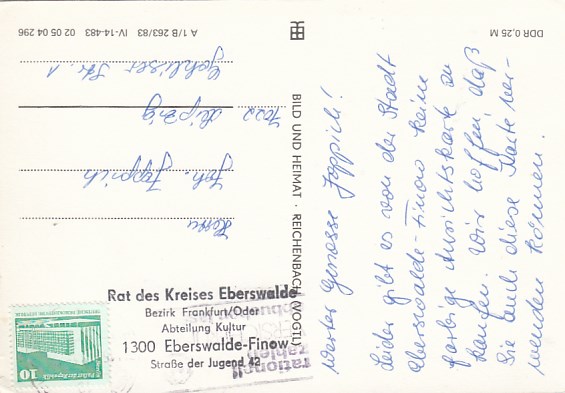 Werter Genosse Joppich!
Leider gibt es von der Stadt
Eberswalde-Finow keine
farbige Ansichtskarte zu
kaufen. Wir hoffen, daß
Sie auch diese Karte ver-
wenden können.
Herrn
Joh. Joppich
7022 Leipzig
Gohliser Str. 1
Rat des Kreises Eberswalde
Bezirk Frankfurt/Oder
Abteilung Kultur
1300 Eberswalde-Finow
Straße der Jugend 42
BILD UND HEIMAT · REICHENBACH (VOGTL)
A 1/B 263/83 IV-14-483 02 05 04 296
DDR 0,25 M
10